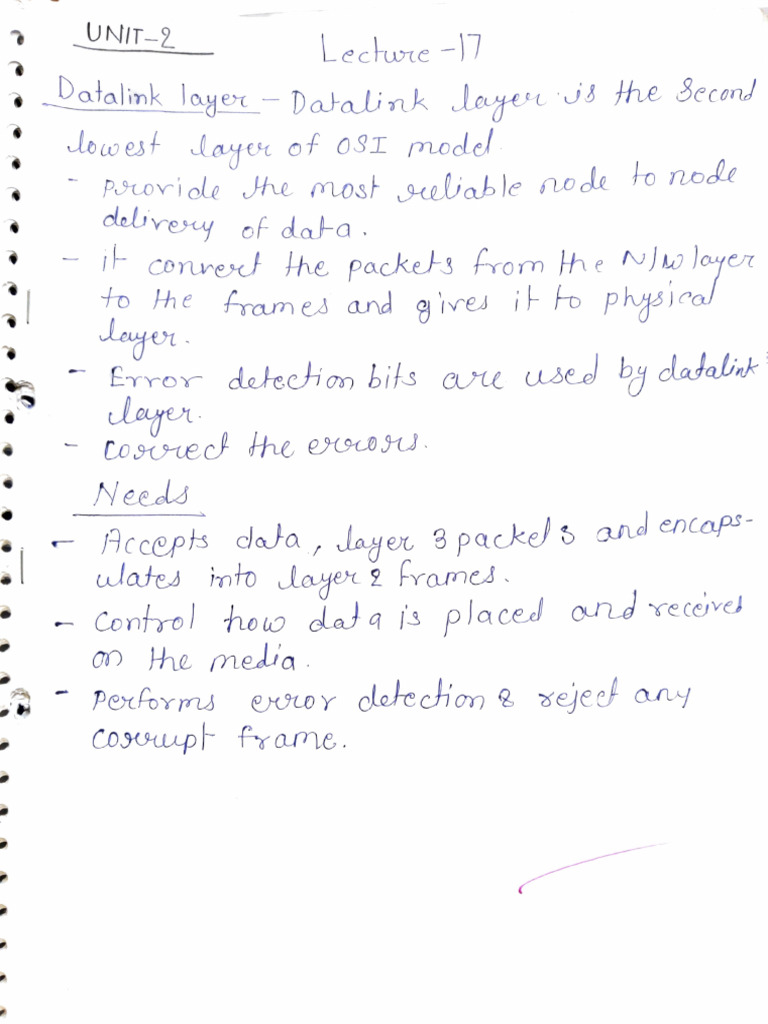 UNIT-2
Lecture -17
Datalink layer - Datalink layer is the second
lowest layer of OSI model.
- Provide the most reliable node to node
delivery of data.
- it convert the packets from the N/w layer
to the frames and gives it to physical
layer.
- Error detection bits are used by datalink
layer.
- Correct the errors.
Needs
- Accepts data, layer 3 packets and encaps-
ulates into layer 2 frames.
- Control how data is placed and received
on the media.
- Performs error detection & reject any
corrupt frame.